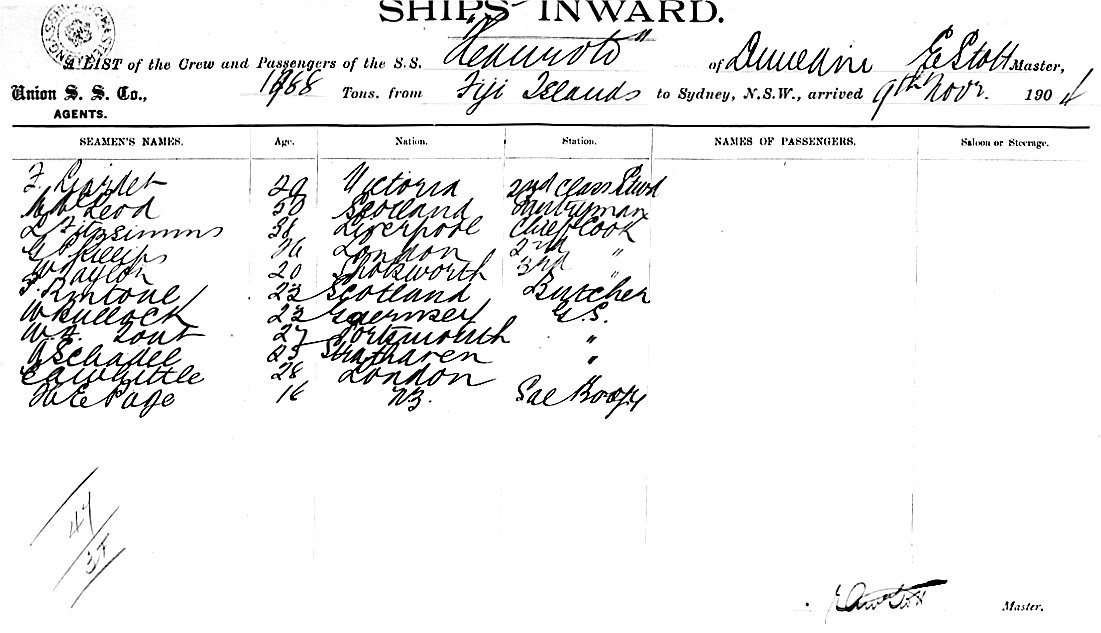 SHIPS INWARD.
A LIST of the Crew and Passengers of the S.S. of Dunedin E Stott Master,
Union S. S. Co., 1968 Tons. from Fiji Islands to Sydney, N.S.W., arrived 9th Novr. 1904
AGENTS.
SEAMEN'S NAMES. Age. Nation. Station. NAMES OF PASSENGERS. Saloon or Steerage.
F. 29 Victoria 2nd Class Stwd
McLeod 30 Scotland Pantryman
L Fitzsimms 38 Liverpool Chief Cook
G Phillips London 2nd "
W Taylor 20 3rd "
F. Rintoul 23 Scotland Butcher
W Bullock 23 Guernsey G.S.
27 Portsmouth "
A Schadel 25 Strathaven "
E A Whittle 28 London
E Page 16 N.Z. Boy
44
Master.